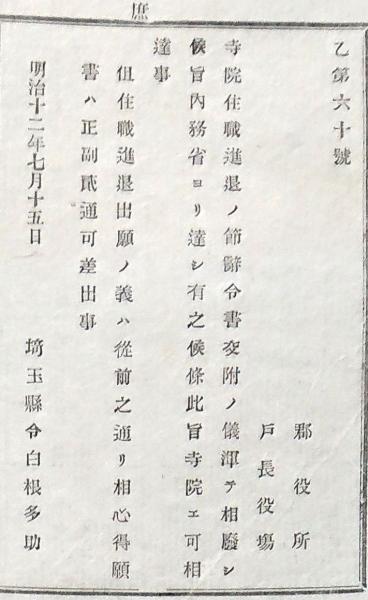 庶
乙第六十號
郡役所
戸長役塲
寺院住職進退ノ節辭令書交附ノ儀渾テ相廢シ
候旨内務省ヨリ達シ有之候條此旨寺院エ可相
達事
但住職進退出願ノ義ハ從前之通リ相心得願
書ハ正副貳通可差出事
明治十二年七月十五日
埼玉縣令白根多助